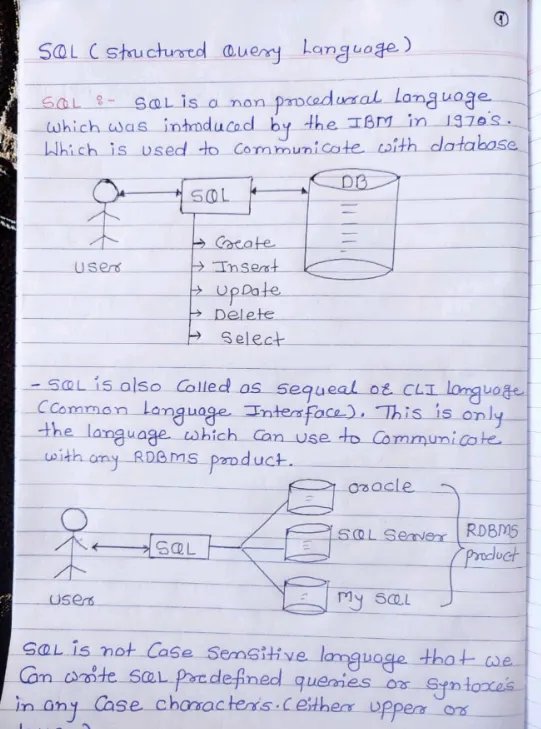 1
SQL (Structured Query Language)
SQL :- SQL is a non procedural Language
which was introduced by the IBM in 1970's.
Which is used to Communicate with database
SQL
DB
User
→ Create
→ Insert
→ UpDate
→ Delete
→ Select
- SQL is also Called as sequeal or CLI language
(Common Language Interface). This is only
the language which Can use to Communicate
with any RDBMS product.
Oracle
SQL Server
RDBMS
product
SQL
User
My SQL
SQL is not Case Sensitive language that we
Can write SQL predefined queries or Syntaxes
in any Case characters. (either upper or